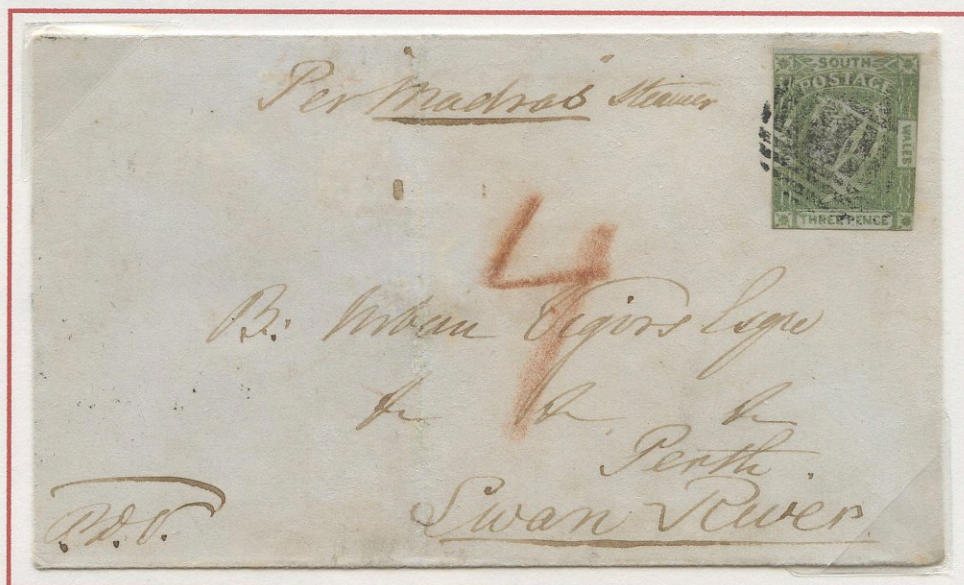 Per "Madras" Steamer
SOUTH
POSTAGE
WALES
THREE PENCE
4
B: Urban Vigors Esqre
&c &c &c
Perth.
Swan River
P.d.V.